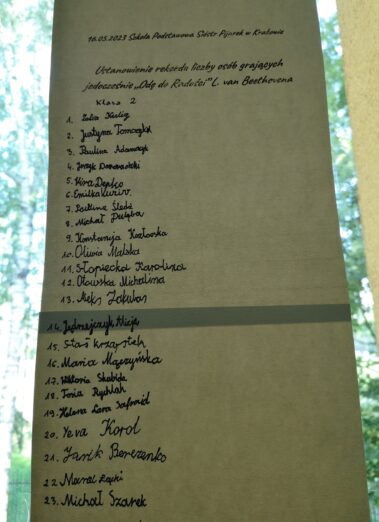 16.05.2023 Szkoła Podstawowa Sióstr Pijarek w Krakowie
Ustanowienie rekordu liczby osób grających
jednocześnie „Odę do Radości” L. van Beethovena
Klasa 2
1. Zofia
2. Justyna Tomczyk
3. Paulina Adamczyk
4. Jerzy
5. Kira
6. Emilka
7. Paulina Śledź
8. Michał
9. Konstancja Kozłowska
10. Oliwia Malska
11. Słopiecka Karolina
12. Oławska Michalina
13. Aleks Jakubas
14. Jędrzejczyk Alicja
15. Staś Krząstek
16. Maria Mączyńska
17. Wiktoria Skabida
18. Tosia Rychlak
19. Helena Lara
20. Yeva Korol
21. Jarik Berezenko
22 Marcel Łapki
23. Michał Szarek